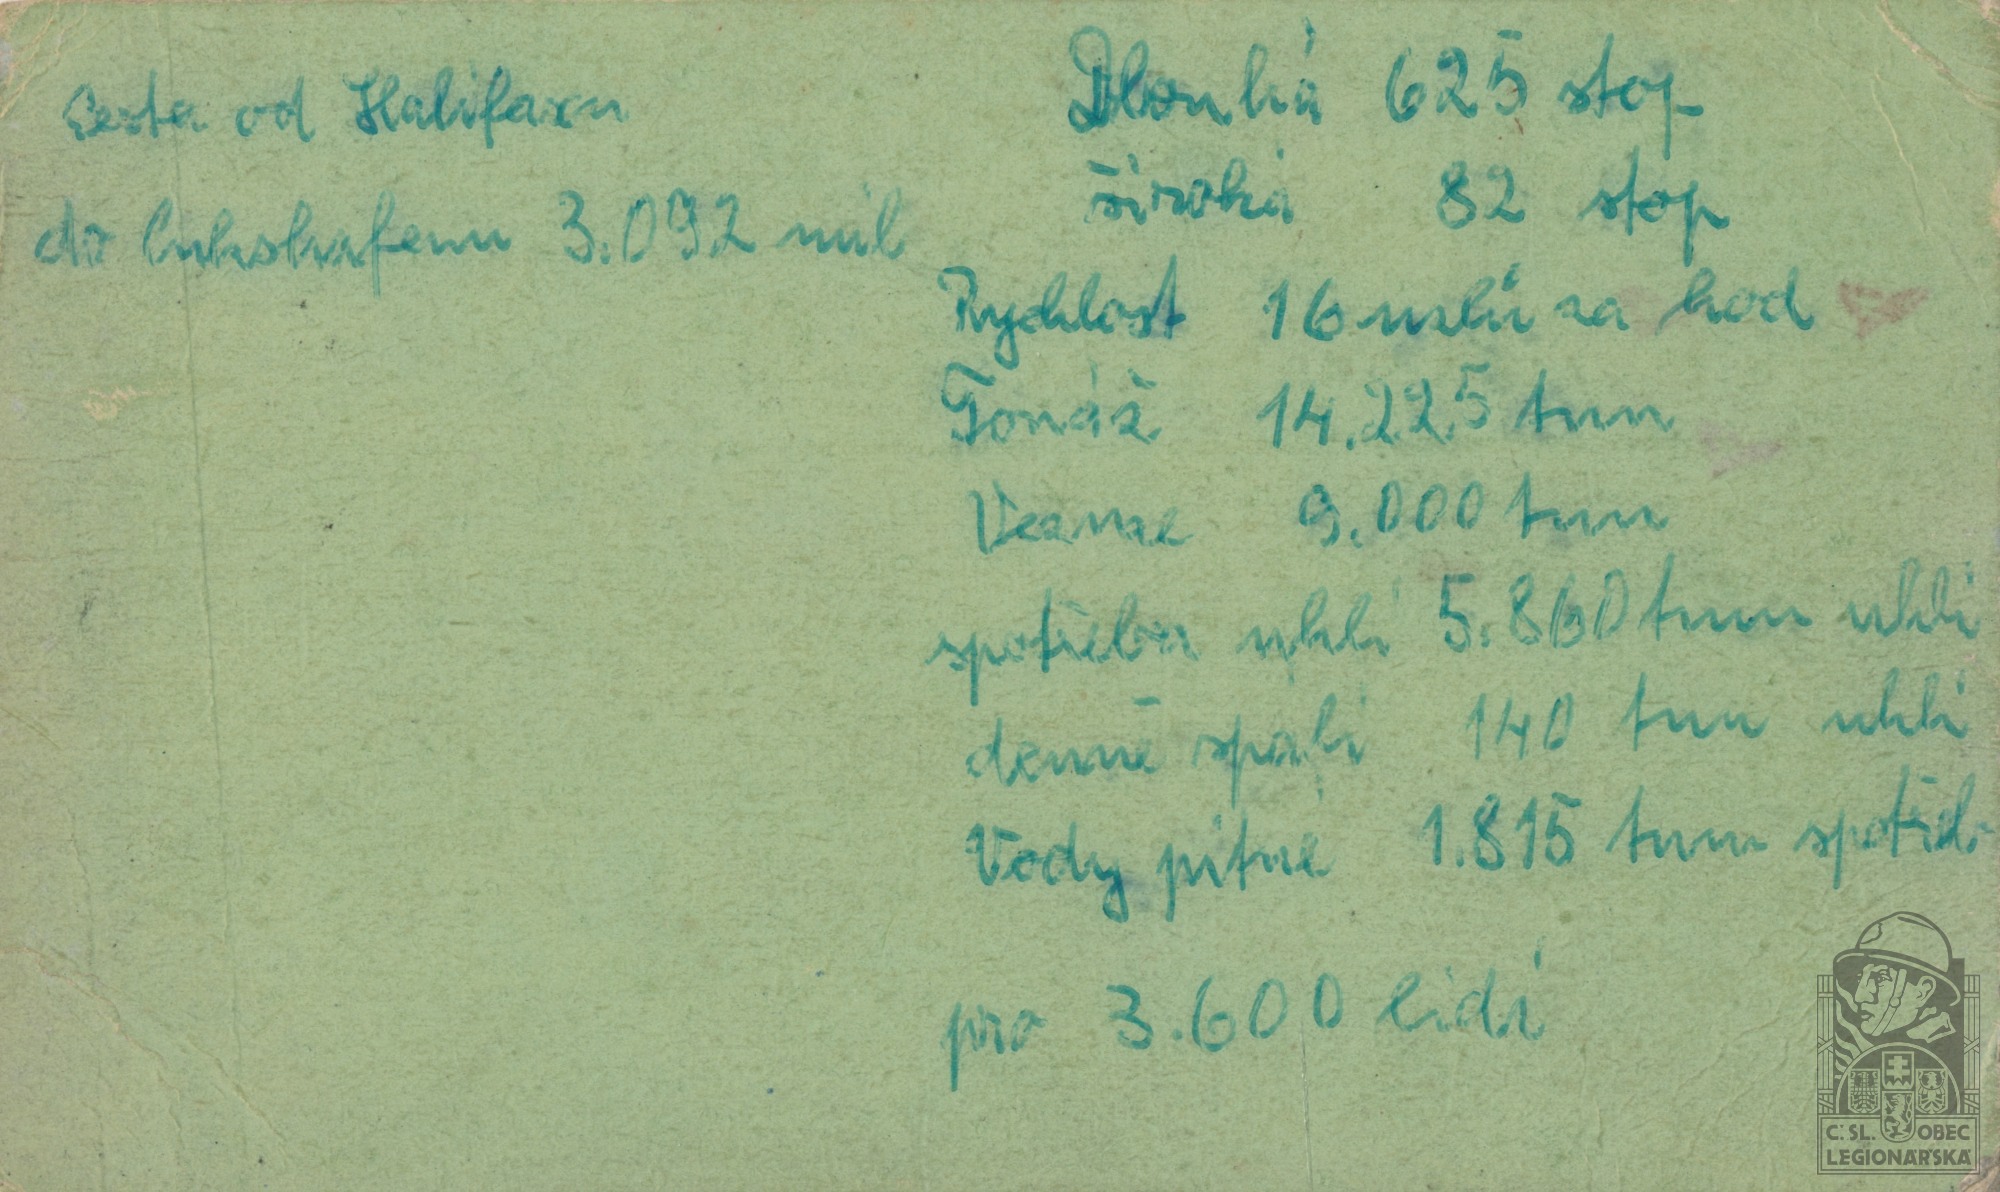 Cesta od Halifaxu
do Cukshafenu 3.092 mil
Dlouhá 625 stop
široká 82 stop
Rychlost 16 uzlů za hod
Tonáž 14.225 tun
Vezme 9.000 tun
spotřeba uhlí 5.860 tun uhlí
denně spálí 140 tun uhlí
Vody pitné 1.815 tun spotřeb.
pro 3.600 lidí
Č. SL. OBEC
LEGIONÁŘSKÁ